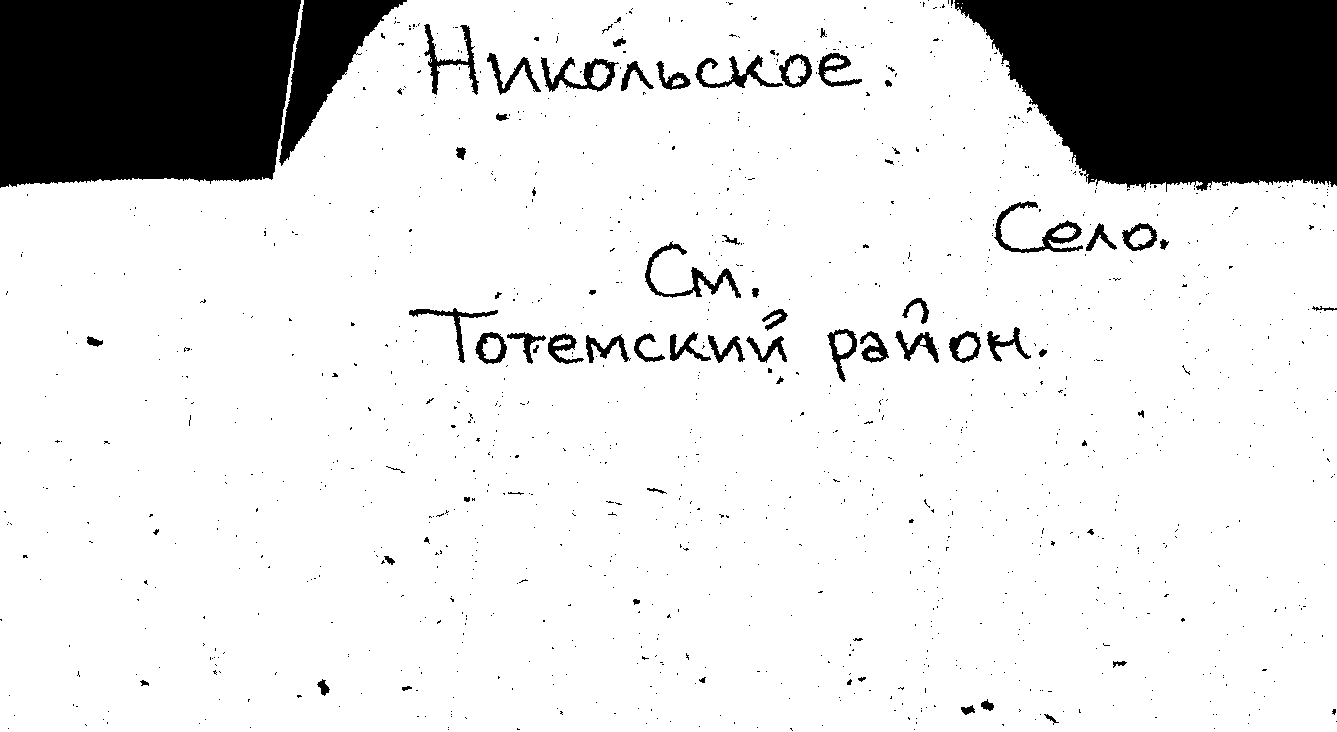 Никольское.
Село.
См.
Тотемский район.